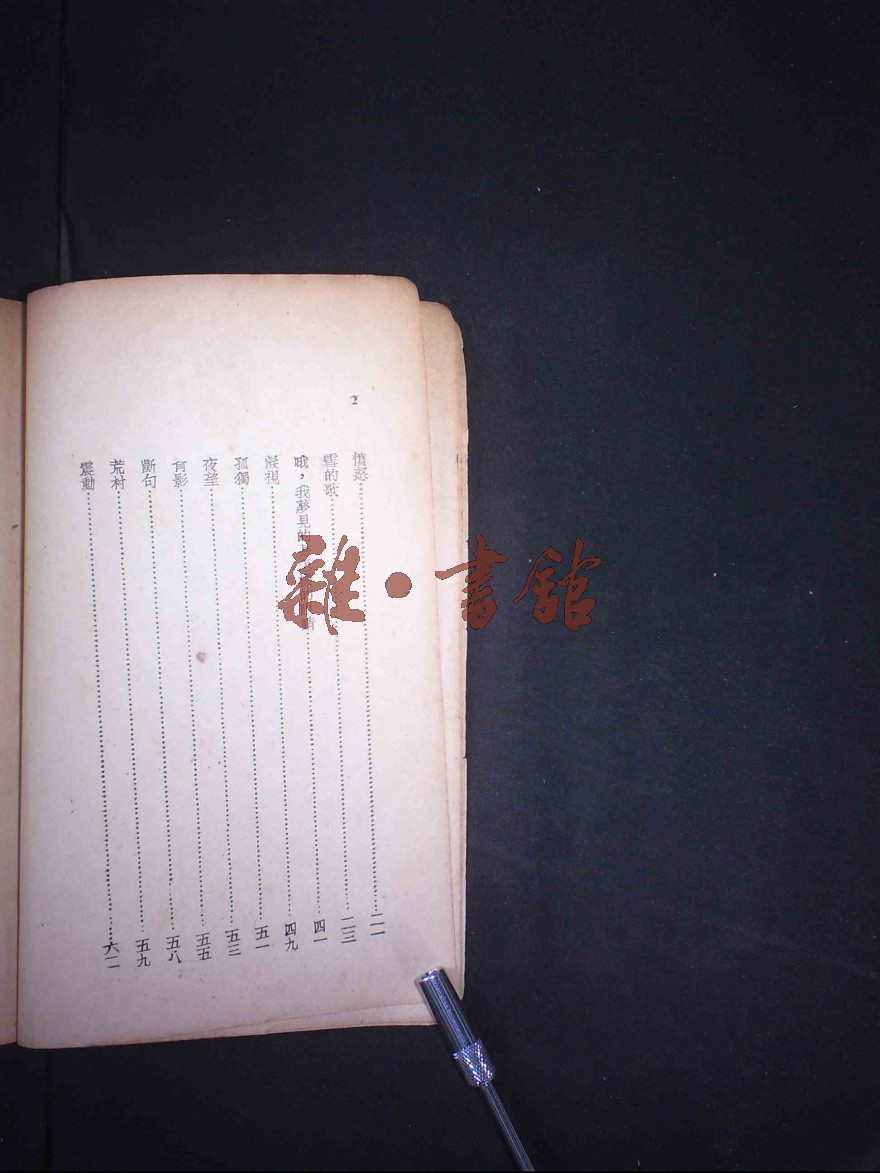 2
憤怒……二一
雪的歌……二三
哦，我夢見的……四一
凝視……四九
孤獨……五一
夜望……五三
背影……五五
斷句……五八
荒村……五九
震動……六二
雜·書館